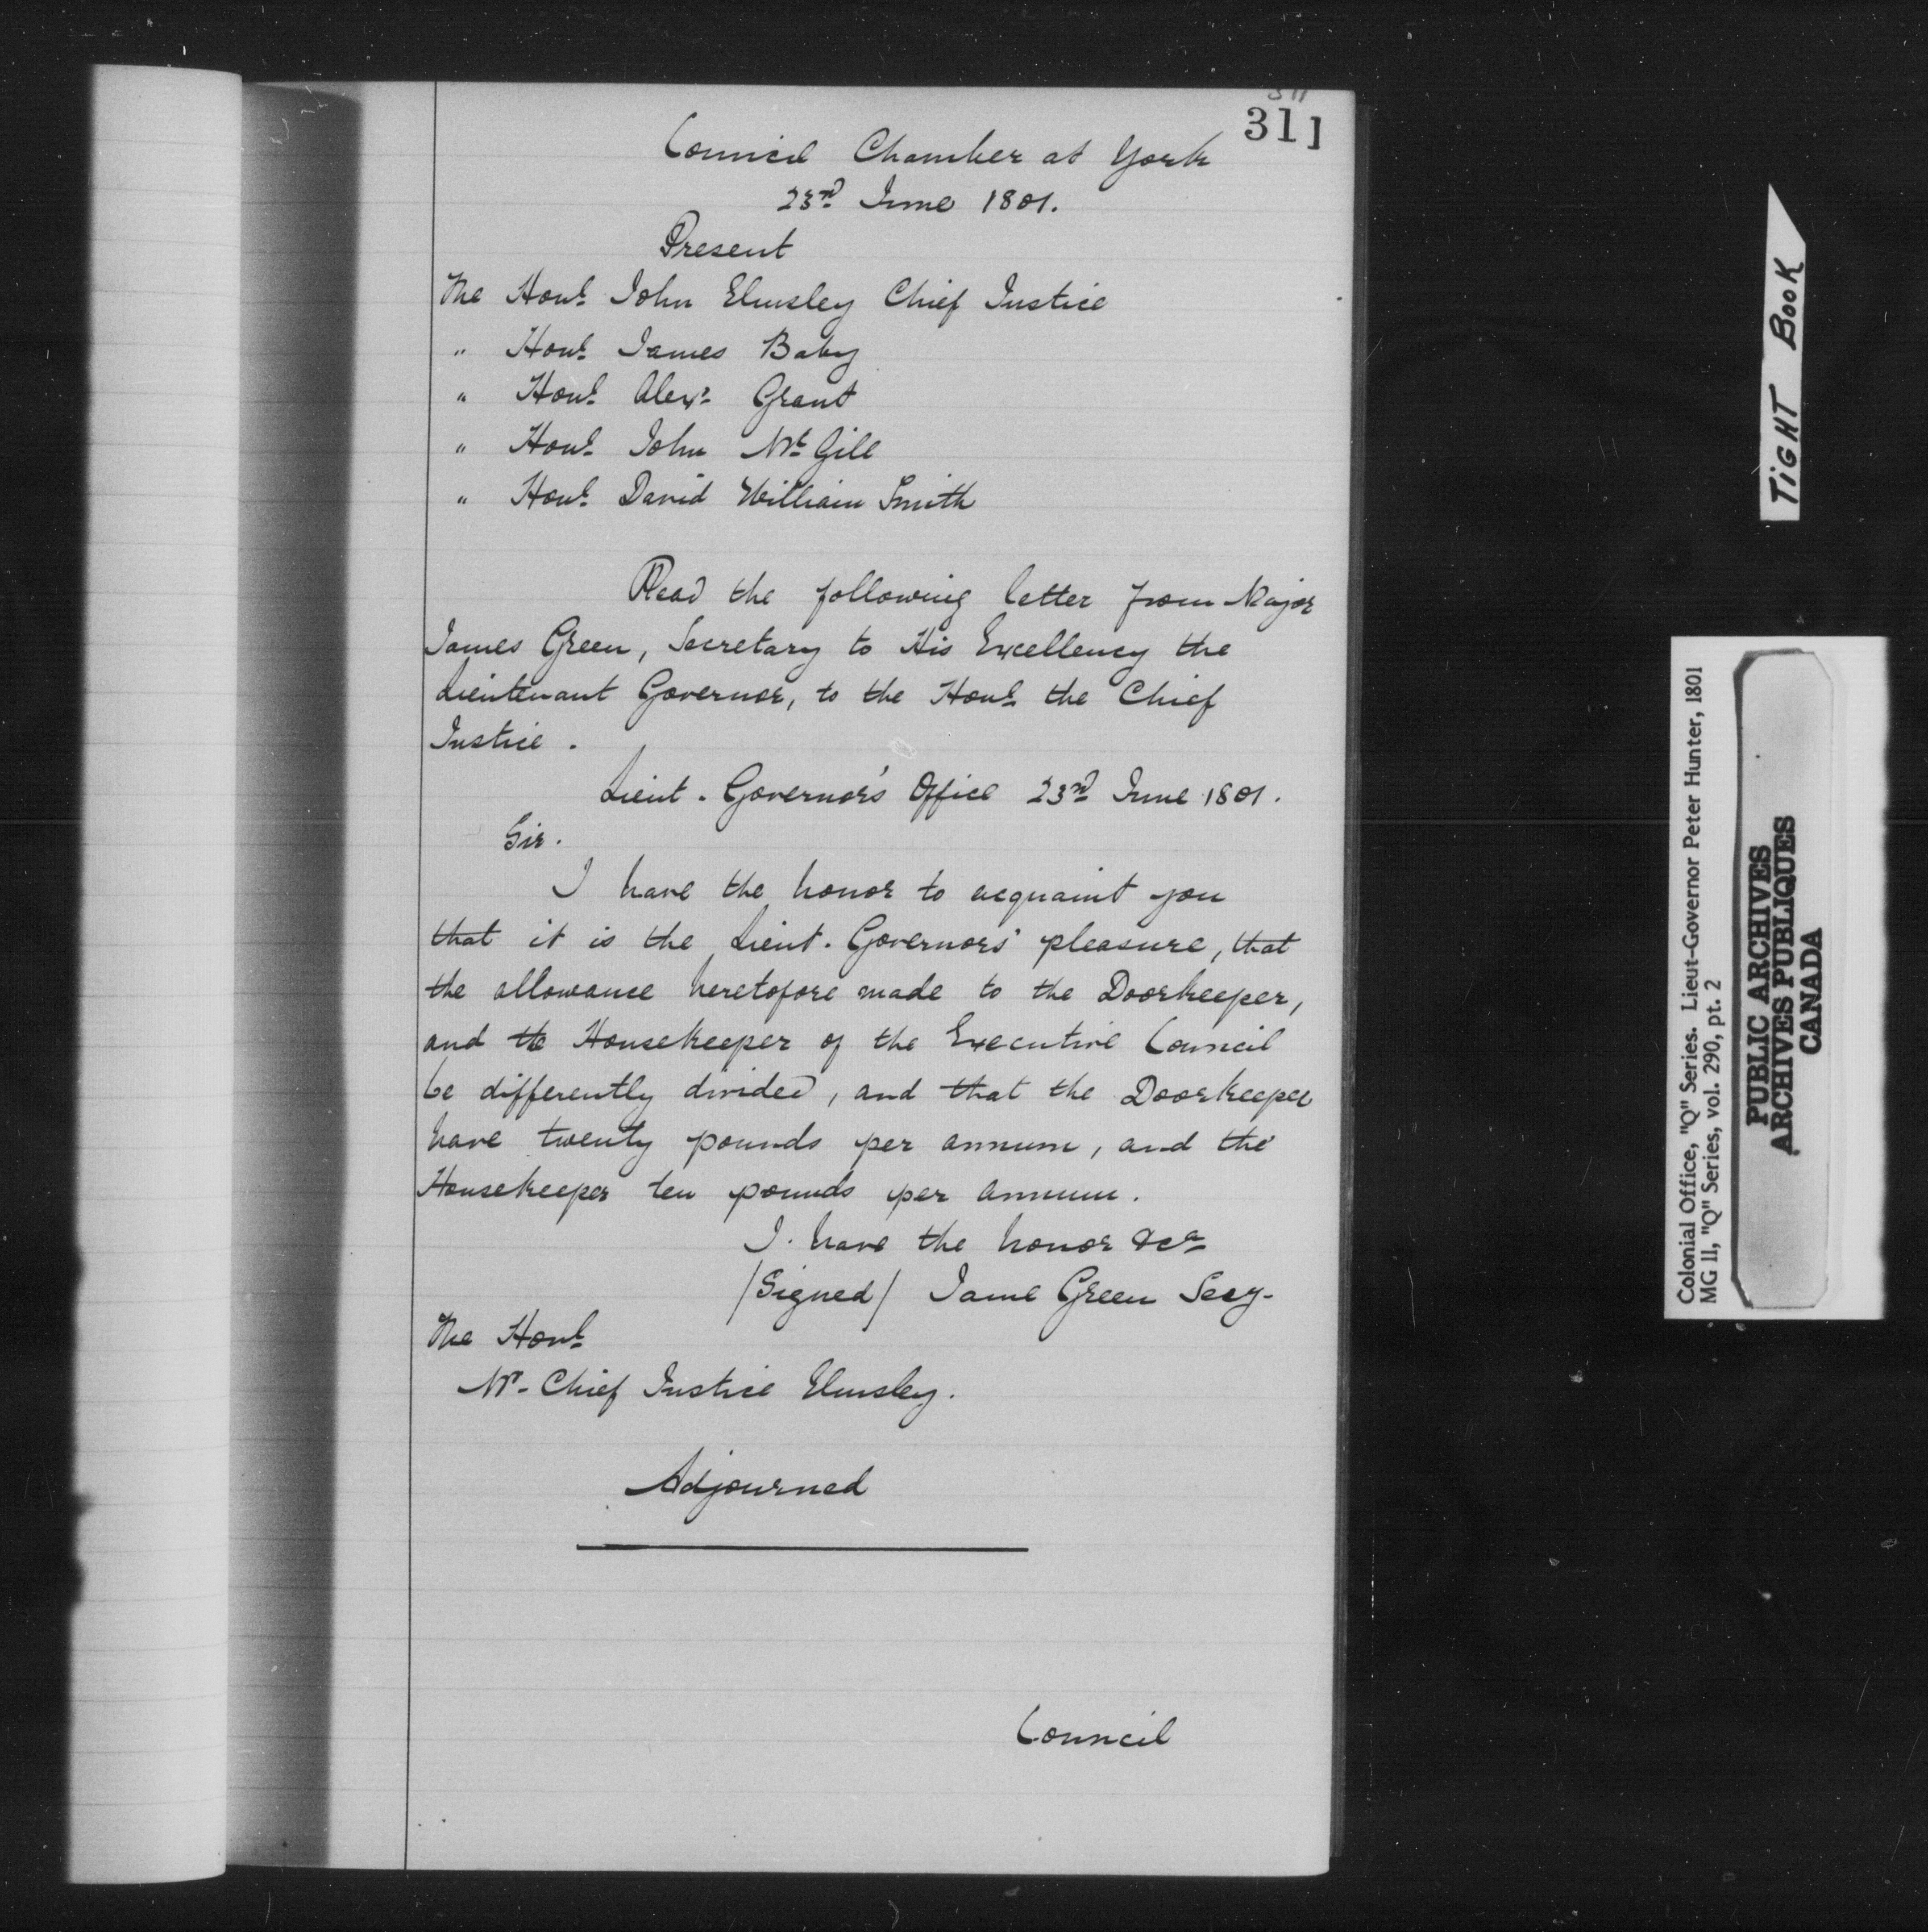 311
311
Council Chamber at York
23rd June 1801.
Present
The Honl. John Elmsley Chief Justice
" Honl. James Baby
" Honl. Alexr. Grant
" Honl. John McGill
" Honl. David William Smith
Read the following letter from Major
James Green, Secretary to His Excellency the
Lieutenant Governor, to the Honl. the Chief
Justice.
Lieut. Governor's Office 23rd June 1801.
Sir.
I have the honor to acquaint you
that it is the Lieut. Governors' pleasure, that
the allowance heretofore made to the Doorkeeper,
and the Housekeeper of the Executive Council
be differently divided, and that the Doorkeeper
have twenty pounds per annum, and the
Housekeeper ten pounds per annum.
I have the honor &ca
/Signed/ Jame Green Secy.
The Honl.
Mr. Chief Justice Elmsley.
Adjourned
Council
TIGHT BOOK
Colonial Office, "Q" Series. Lieut-Governor Peter Hunter, 1801
MG 11, "Q" Series, vol. 290, pt. 2
PUBLIC ARCHIVES
ARCHIVES PUBLIQUES
CANADA